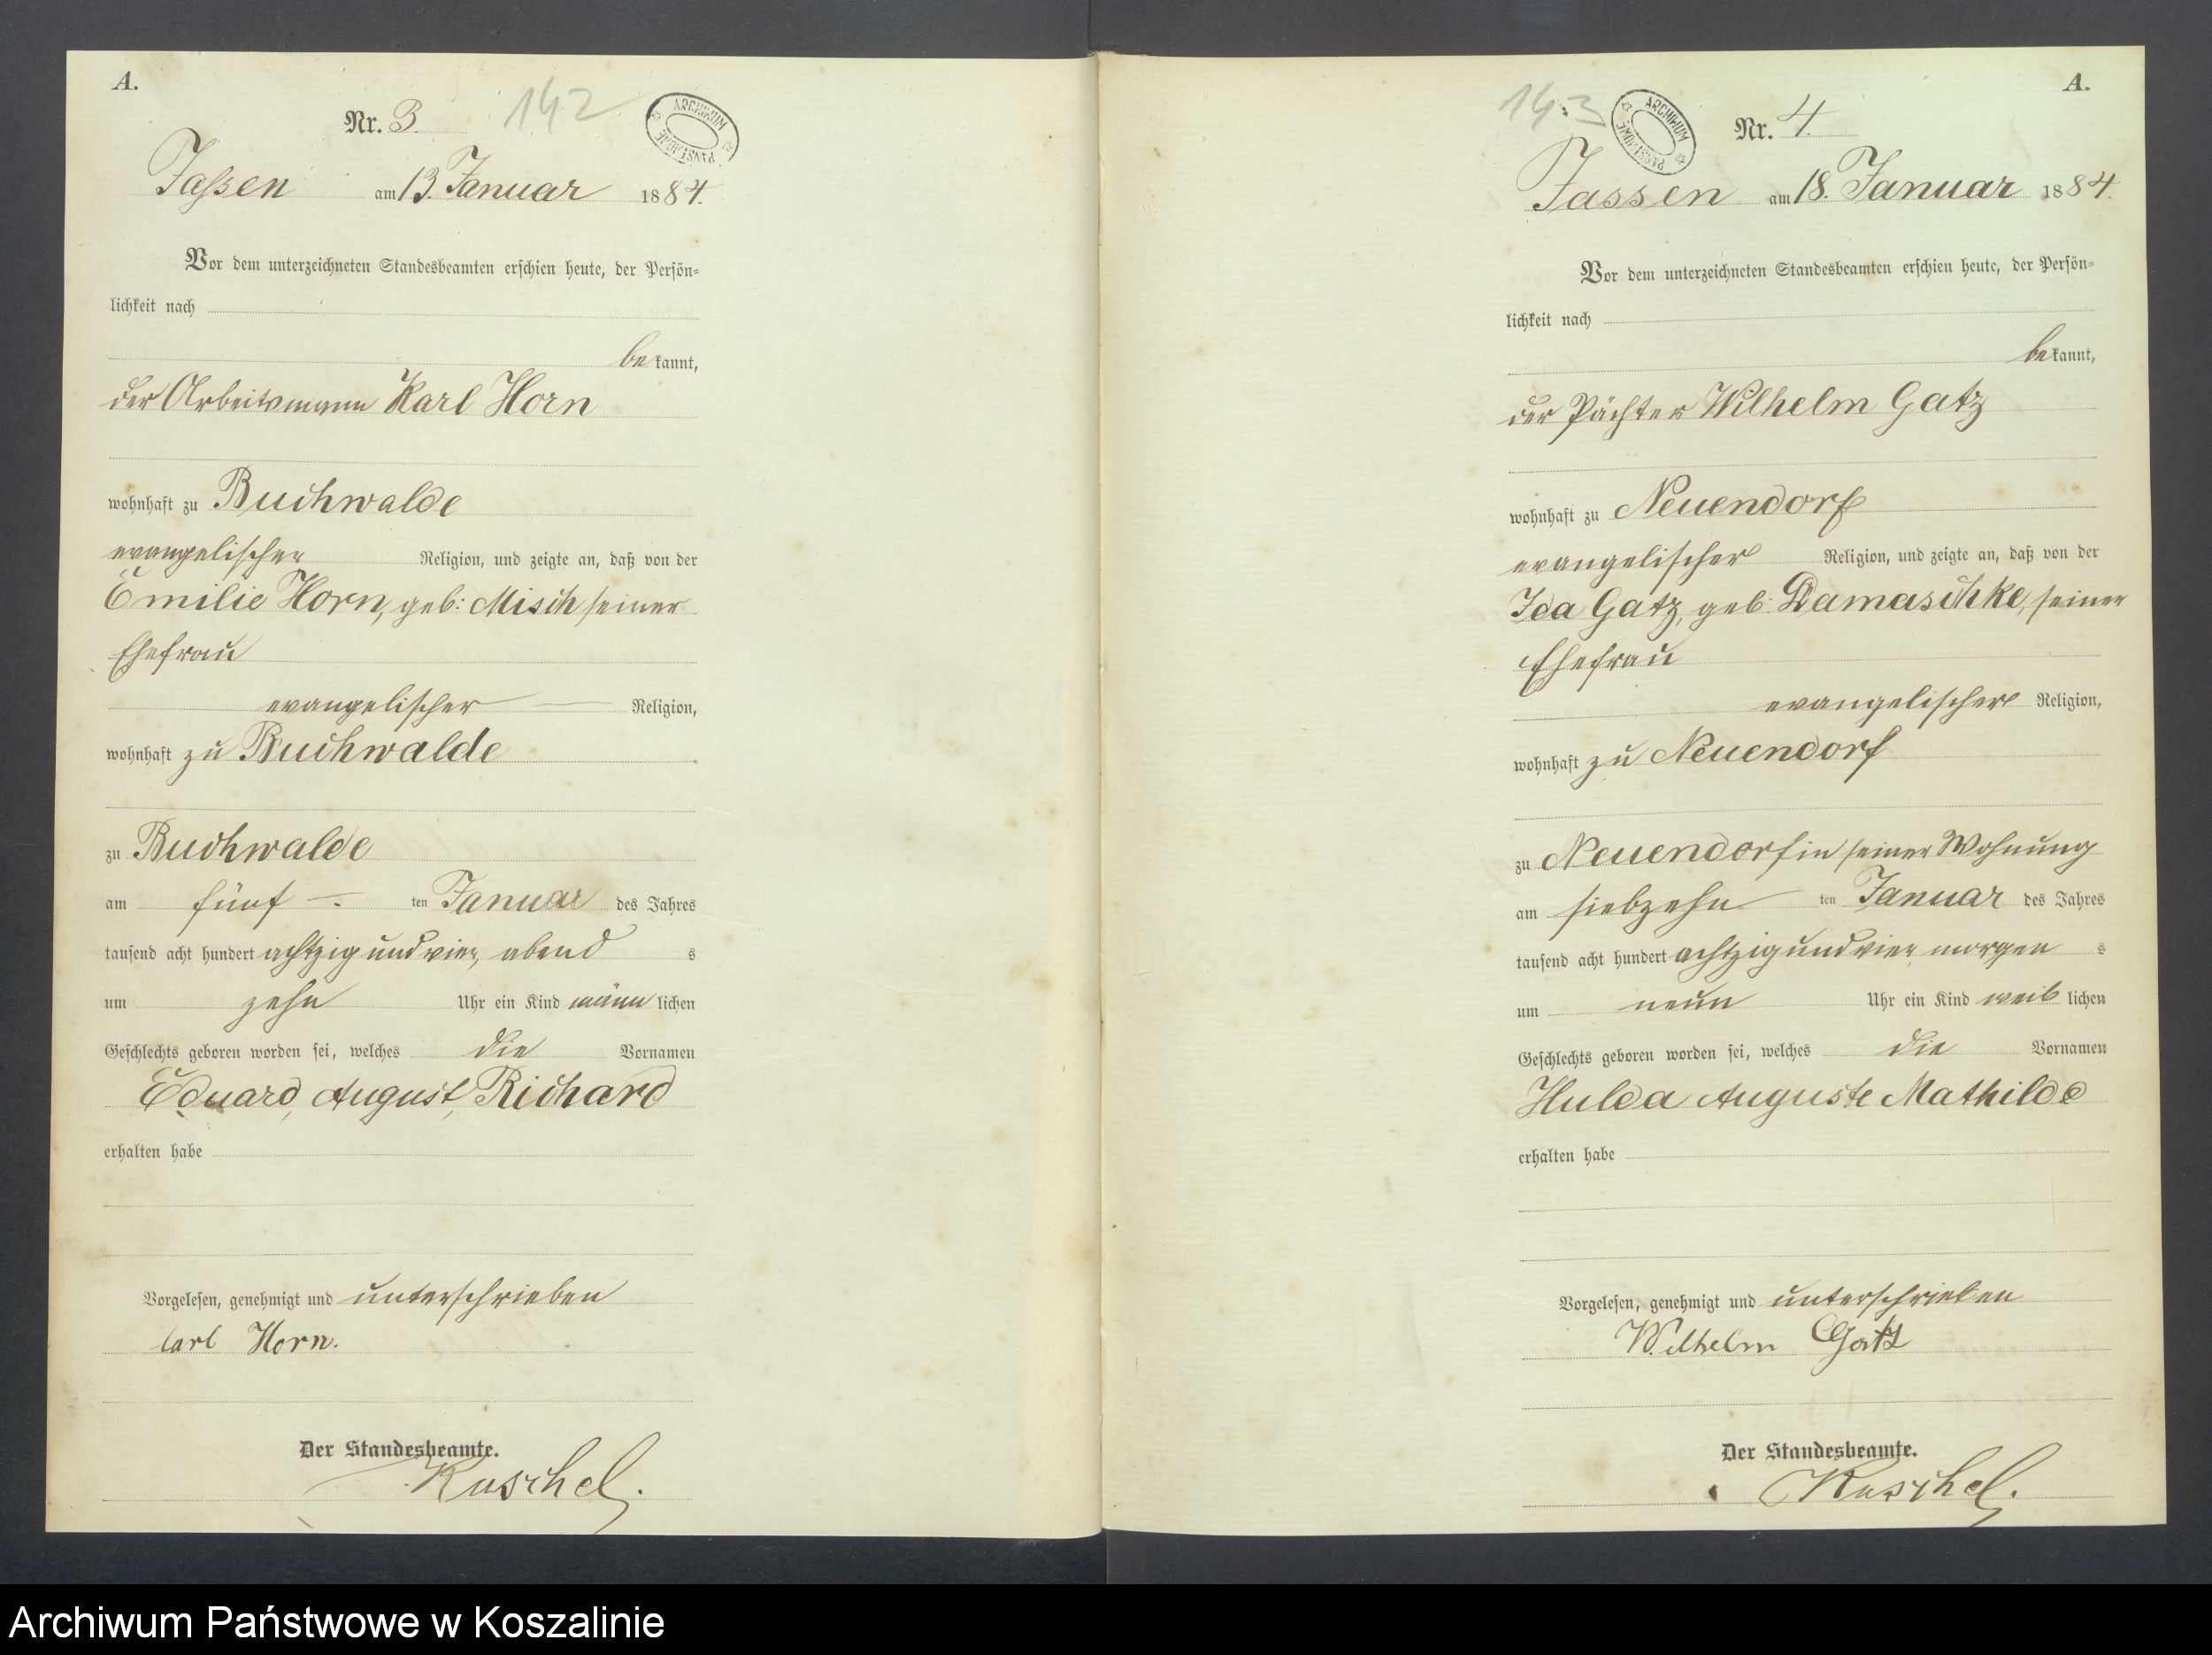 A.
Nr. 3.
142
ARCHIWUM PAŃSTWOWE
Jassen am 13. Januar 1884.
Vor dem unterzeichneten Standesbeamten erschien heute, der Persön-
lichkeit nach
bekannt,
der Arbeitsmann Karl Horn
wohnhaft zu Buchwalde
evangelischer Religion, und zeigte an, daß von der
Emilie Horn, geb: Misch seiner
Ehefrau
evangelischer Religion,
wohnhaft zu Buchwalde
zu Buchwalde
am fünf ten Januar des Jahres
tausend acht hundert achtzig und vier, abend s
um zehn Uhr ein Kind männlichen
Geschlechts geboren worden sei, welches die Vornamen
Eduard, August, Richard
erhalten habe
Vorgelesen, genehmigt und unterschrieben
Carl Horn.
Der Standesbeamte.
Kuschel.
A.
143
ARCHIWUM PAŃSTWOWE
Nr. 4.
Jassen am 18. Januar 1884.
Vor dem unterzeichneten Standesbeamten erschien heute, der Persön-
lichkeit nach
bekannt,
der Pächter Wilhelm Gatz
wohnhaft zu Neuendorf
evangelischer Religion, und zeigte an, daß von der
Ida Gatz, geb: Damaschke, seiner
Ehefrau
evangelischer Religion,
wohnhaft zu Neuendorf
zu Neuendorf in seiner Wohnung
am siebzehn ten Januar des Jahres
tausend acht hundert achtzig und vier morgen s
um neun Uhr ein Kind weiblichen
Geschlechts geboren worden sei, welches die Vornamen
Hulda Auguste Mathilde
erhalten habe
Vorgelesen, genehmigt und unterschrieben
Wilhelm Gatz
Der Standesbeamte.
Kuschel.
Archiwum Państwowe w Koszalinie